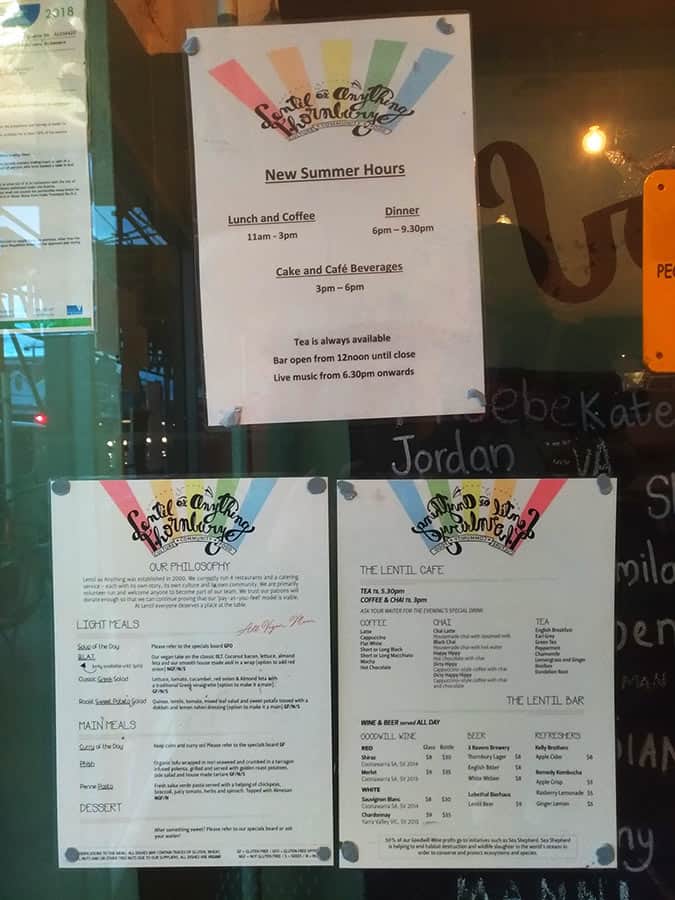 2018
Lentil as Anything
Thornbury
CULTURE • COMMUNITY • FOOD
New Summer Hours
Lunch and Coffee
11am - 3pm
Dinner
6pm – 9.30pm
Cake and Café Beverages
3pm – 6pm
Tea is always available
Bar open from 12noon until close
Live music from 6.30pm onwards
PEO
Phoebe Kate
Jordan
Lentil as Anything
Thornbury
CULTURE • COMMUNITY • FOOD
OUR PHILOSOPHY
Lentil as Anything was established in 2000. We currently run 4 restaurants and a catering
service – each with its own story, its own culture and its own community. We are primarily
volunteer run and welcome anyone to become part of our team. We trust our patrons will
donate enough so that we can continue proving that our 'pay-as-you-feel' model is viable.
At Lentil everyone deserves a place at the table.
LIGHT MEALS
All Vegan Menu
Soup of the Day
Please refer to the specials board GFO
B.L.A.T.
Our vegan take on the classic BLT. Coconut bacon, lettuce, almond
feta and our smooth house made aioli in a wrap (option to add red
onion) NGF/N/S
Classic Greek Salad
Lettuce, tomato, cucumber, red onion & Almond feta with
a traditional Greek vinaigrette (option to make it a main)
GF/N/S
Roast Sweet Potato Salad
Quinoa, lentils, tomato, mixed leaf salad and sweet potato tossed with a
dukkah and lemon tahini dressing (option to make it a main) GF/N/S
MAIN MEALS
Curry of the Day
Keep calm and curry on! Please refer to the specials board GF
Phish
Organic tofu wrapped in nori seaweed and crumbed in a tarragon
infused polenta, grilled and served with golden roast potatoes,
side salad and house made tartare GF/N/S
Penne Pasta
Fresh salsa verde pasta served with a helping of chickpeas,
broccoli, juicy tomato, herbs and spinach. Topped with Almesan
NGF/N
DESSERT
What something sweet? Please refer to our specials board or ask
your waiter!
THE LENTIL CAFE
TEA TIL 5.30pm
COFFEE & CHAI TIL 3pm
ASK YOUR WAITER FOR THE EVENING'S SPECIAL DRINK
COFFEE
Latte
Cappuccino
Flat White
Short or Long Black
Short or Long Macchiato
Mocha
Hot Chocolate
CHAI
Chai Latte
Housemade chai with steamed milk
Black Chai
Housemade chai with hot water
Happy Hippy
Hot chocolate with chai
Dirty Hippy
Cappuccino-style coffee with
chai
Dirty Happy Hippy
Cappuccino-style coffee with chai
and chocolate
TEA
English Breakfast
Earl Grey
Green Tea
Peppermint
Chamomile
Lemongrass and Ginger
Rooibos
Dandelion Root
THE LENTIL BAR
WINE & BEER served ALL DAY
GOODWILL WINE
Glass Bottle
RED
Shiraz $8 $30
Coonawarra SA, SV 2014
Merlot $9 $35
Coonawarra SA, SV 2015
WHITE
Sauvignon Blanc $8 $30
Coonawarra SA, SV 2014
Chardonnay $9 $35
Yarra Valley VIC, SV 2013
BEER
3 Ravens Brewery
Thornbury Lager $8
English Bitter $8
White Witbier $8
Lubethal Bierhaus
Lentil Beer $9
REFRESHERS
Kelly Brothers
Apple Cider $8
Remedy Kombucha
Apple Crisp $5
Rasberry Lemonade $5
Ginger Lemon $5
50% of our Goodwill Wine profits go to initiatives such as Sea Shepherd. Sea Shepherd
is helping to end habitat destruction and wildlife slaughter in the world's oceans in
order to conserve and protect ecosystems and species.